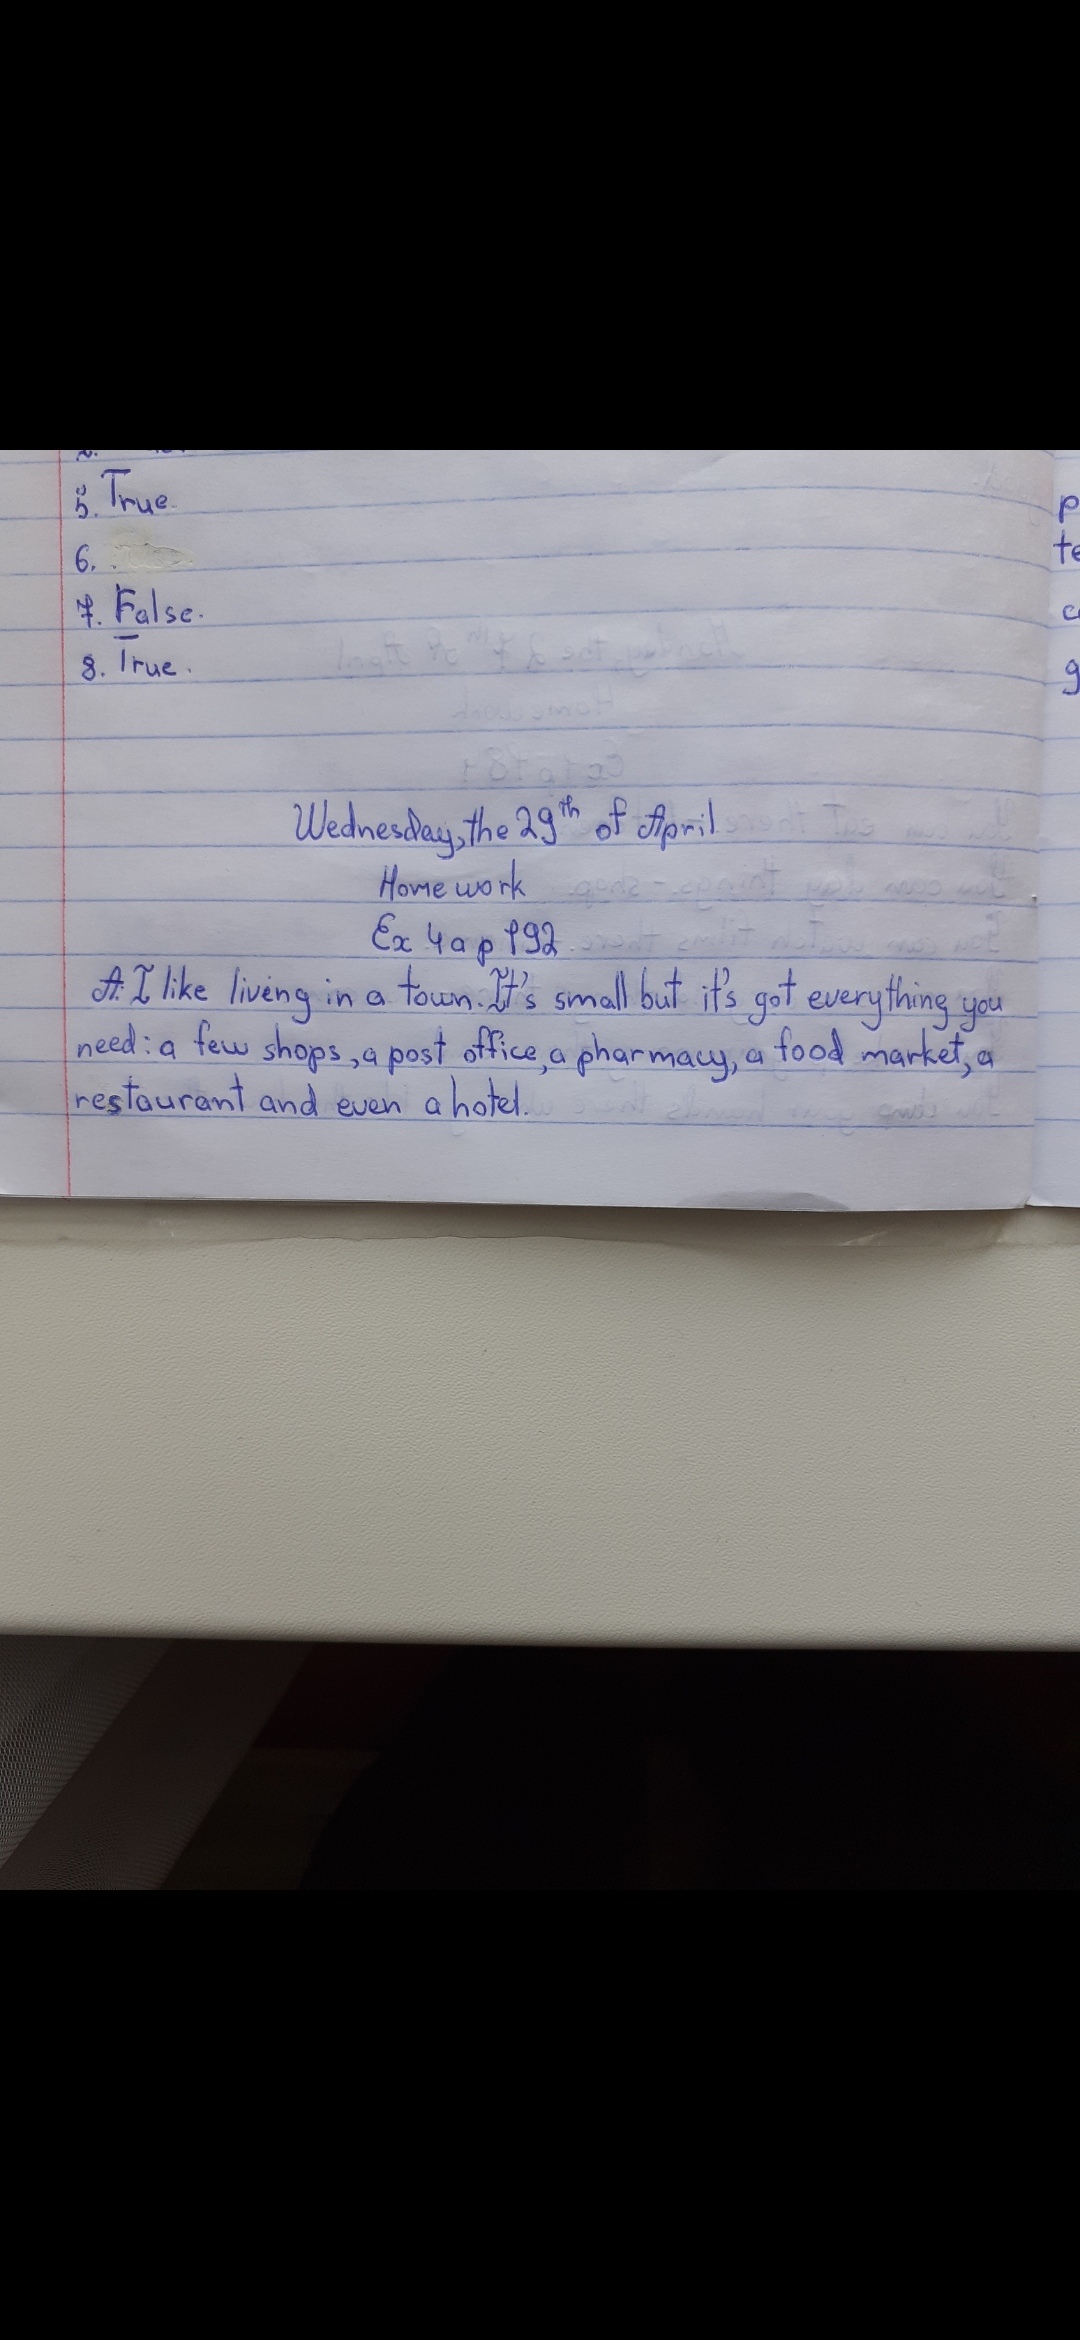 5. True.
6.
7. False.
8. True.
Wednesday, the 29th of April
Homework
Ex 4a p 192
A. I like living in a town. It's small but it's got everything you
need: a few shops, a post office, a pharmacy, a food market, a
restaurant and even a hotel.
p
te
c
g